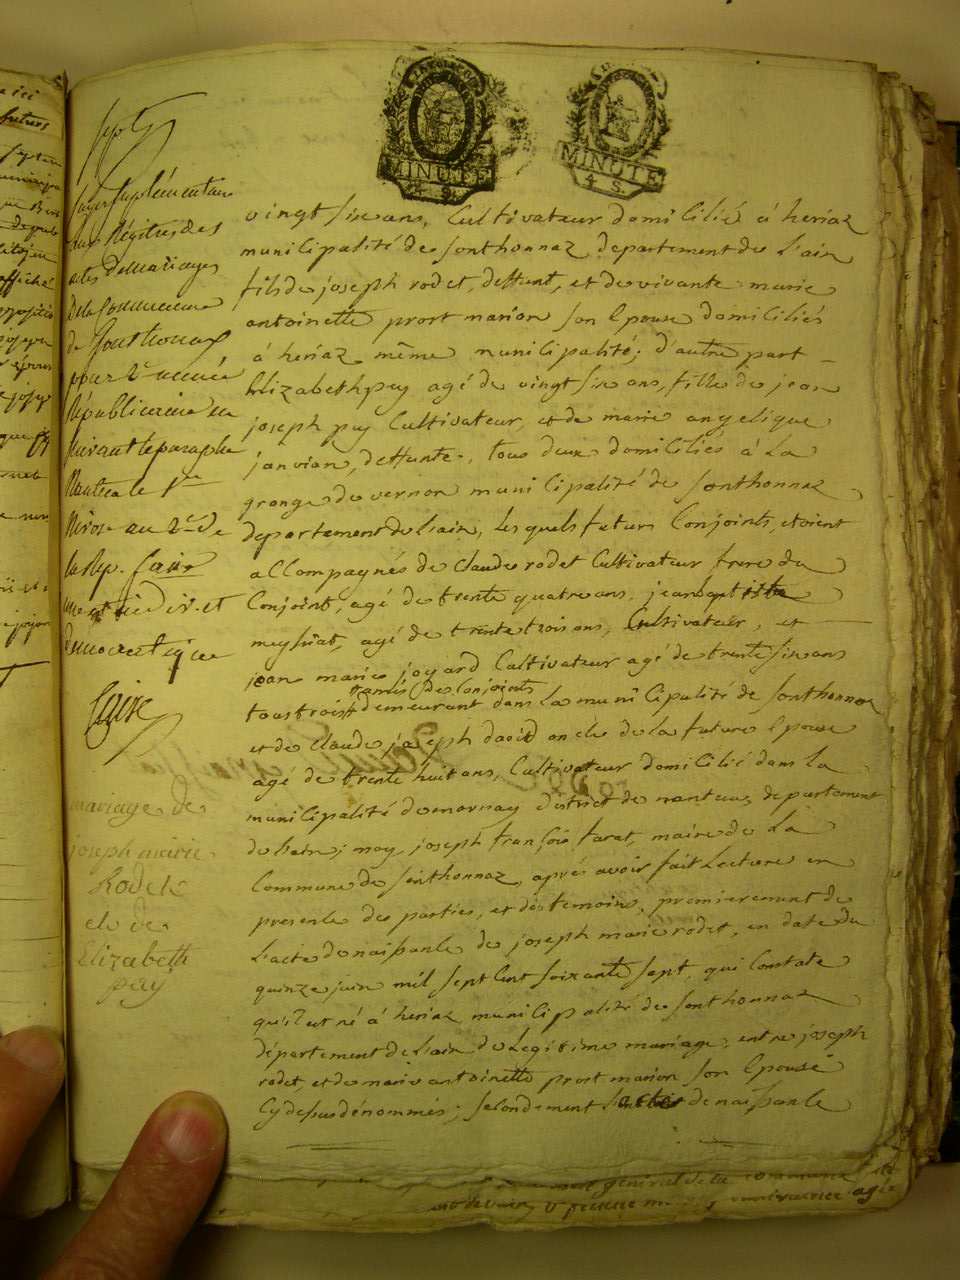 MINUTE
4 S.
MINUTE
4 S.
sept
Supplémentaire
aux Régitres des
actes de Mariages
De la Commune
de Sonthonnax
pour 2e année
Républicaine
suivant le paraphe
Nantua le 1er
Nivose au 2e de
la Rep. française
une et indiv. et
démocratique
mariage de
joseph marie
Rodet
et de
Elizabeth
puy
vingt six ans, Cultivateur domicilié á heriaz
municipalité de sonthonnaz departement de L'ain
fils de joseph rodet, deffunt, et de vivante marie
antoinette prost marion son Epouse domiciliés
á heriaz même municipalité; d'autre part
Elizabeth puy agé de vingt six ans, fille de jean
joseph puy Cultivateur, et de marie angelique
janvian, deffunte, tous deux domiciliés á La
grange du vernon municipalité de sonthonnaz
departement de L'ain, les quels futurs Conjoints, etoient
accompagnés de Claude rodet Cultivateur frere du
Conjoint, agé de trente quatre ans, jean baptiste
meyniat, agé de trente trois ans, Cultivateur, et
jean marie joyard Cultivateur agé de trente six ans
amis des Conjoints
tous trois demeurant dans La municipalité de sonthonnaz
et de Claude joseph david oncle de la future Epouse
agé de trente huit ans, Cultivateur domicilié dans La
municipalité de mornay district de nantua, departement
de L'ain; moy joseph françois farat, maire de La
Commune de sonthonnaz, aprés avoir fait Lecture en
presence des parties, et des temoins, premierement de
L'acte de naissance de joseph marie rodet, en date du
quinze juin mil sept cent soixante sept, qui Constate
qu'il est né á heriaz municipalité de sonthonnaz
département de L'ain de Legitime mariage, entre joseph
rodet, et de marie antoinette prost marion son Epouse
Cy dessus dénommés; secondement acte de naissance
general de la commune
agée